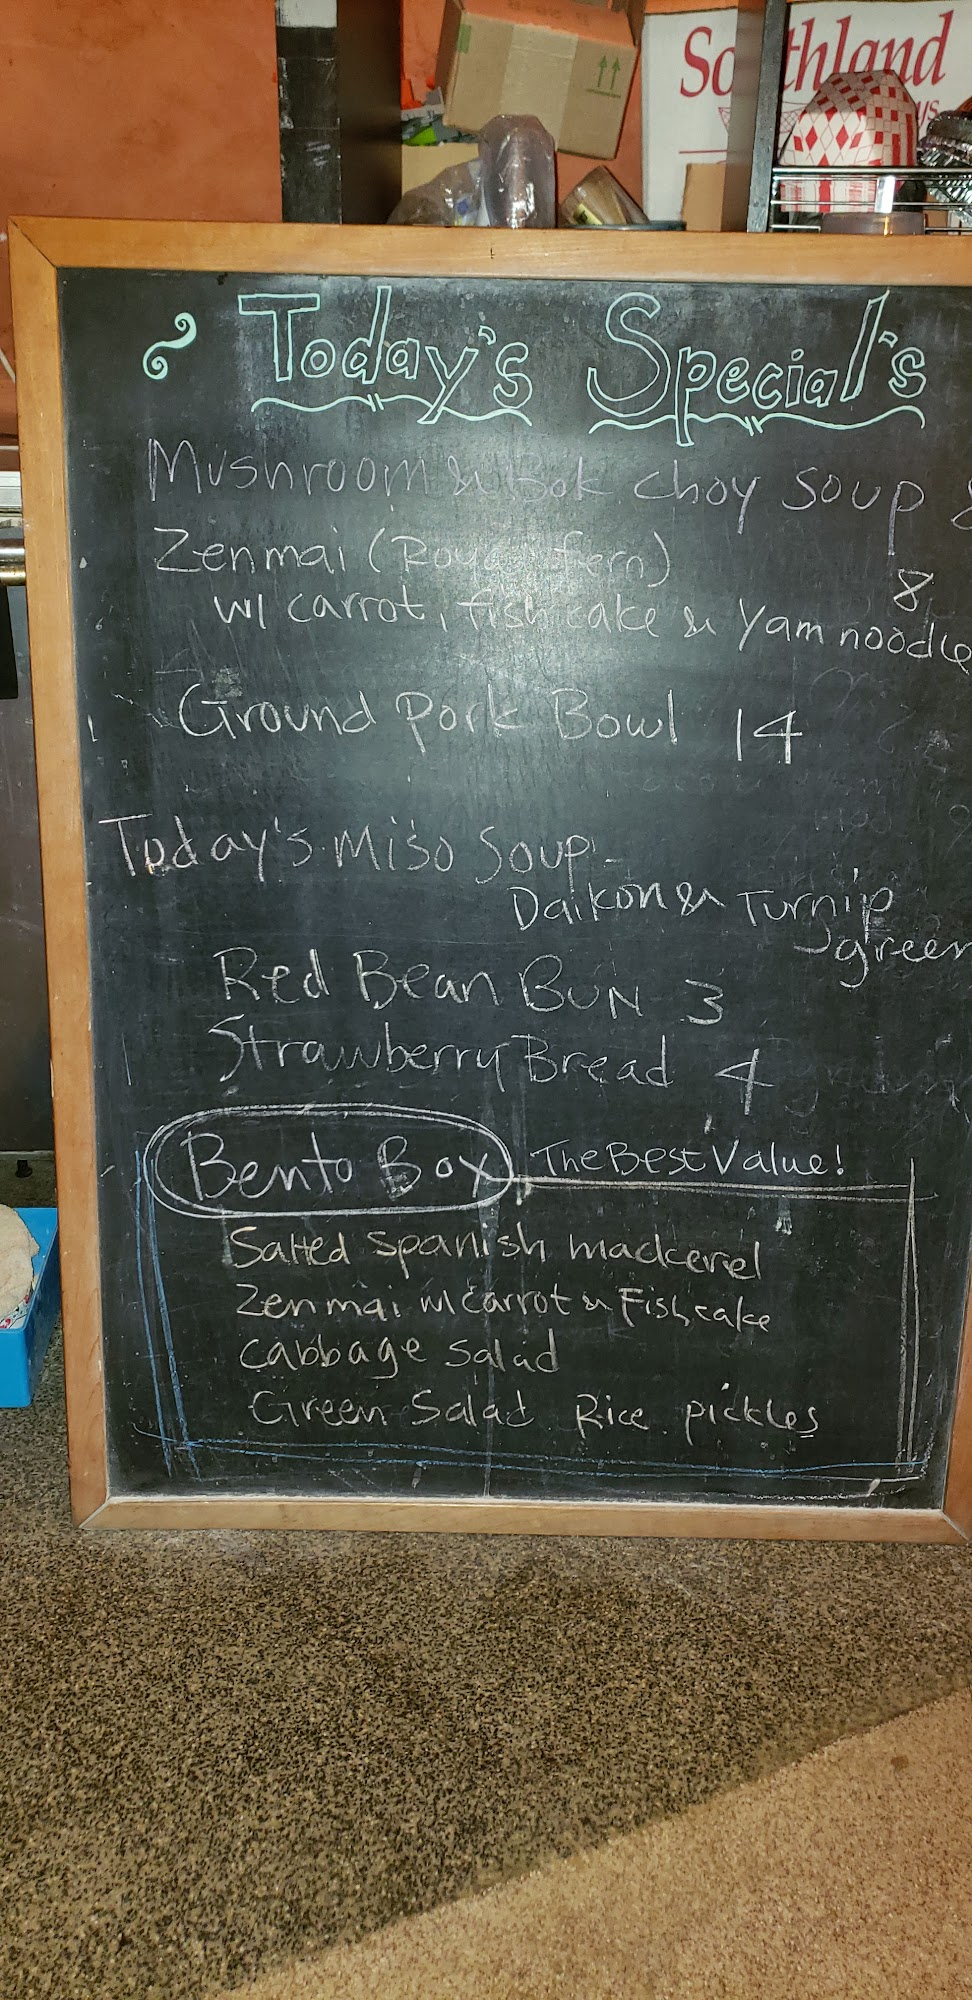 Southland
Today's Special's
Mushroom & Bok choy Soup
Zenmai (Royal fern)
8
w/ carrot, fish cake & Yam noodle
Ground Pork Bowl 14
Today's Miso Soup -
Daikon & Turnip
green
Red Bean BUN 3
Strawberry Bread 4
Bento Box The Best Value!
Salted spanish mackerel
Zenmai w/ carrot & Fish cake
Cabbage salad
Green Salad Rice pickles